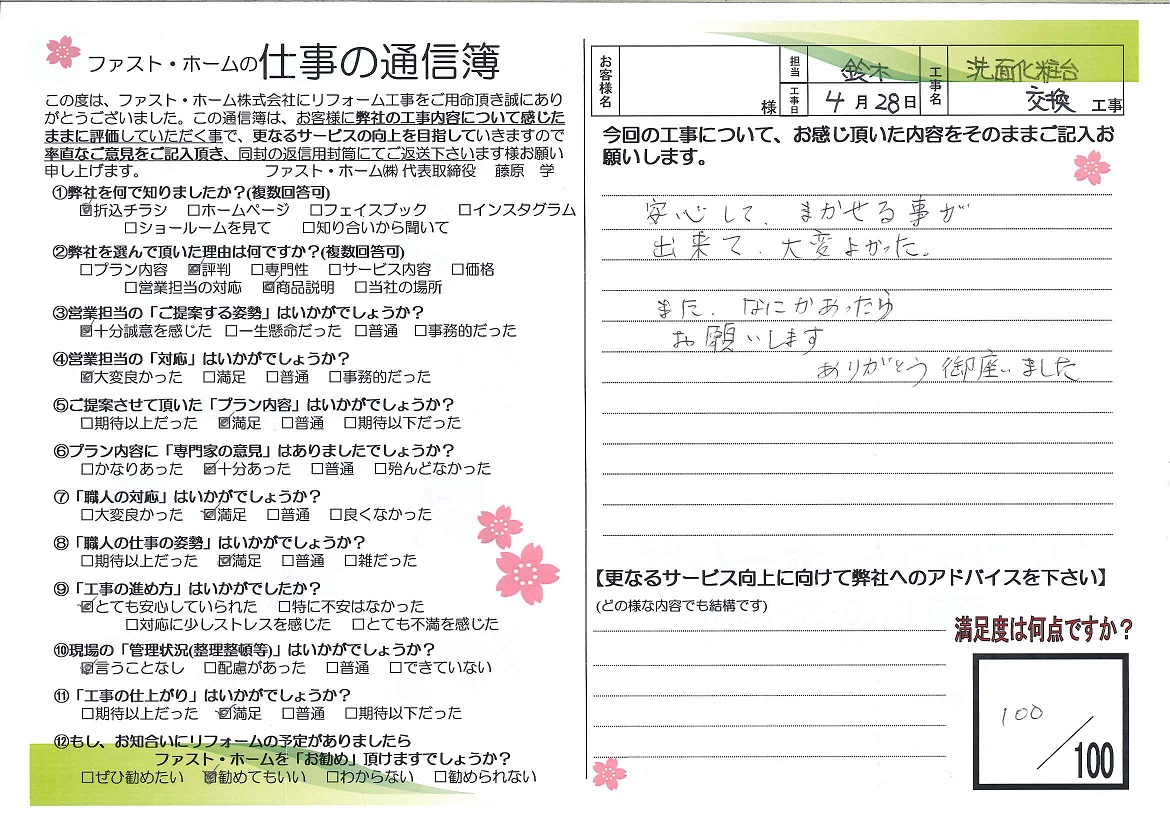 ファスト・ホームの仕事の通信簿
この度は、ファスト・ホーム株式会社にリフォーム工事をご用命頂き誠にあり
がとうございました。この通信簿は、お客様に弊社の工事内容について感じた
ままに評価していただく事で、更なるサービスの向上を目指していきますので
率直なご意見をご記入頂き、同封の返信用封筒にてご返送下さいます様お願い
申し上げます。 ファスト・ホーム㈱ 代表取締役 藤原 学
①弊社を何で知りましたか?(複数回答可)
☑折込チラシ □ホームページ □フェイスブック □インスタグラム
□ショールームを見て □知り合いから聞いて
②弊社を選んで頂いた理由は何ですか?(複数回答可)
□プラン内容 ☑評判 □専門性 □サービス内容 □価格
□営業担当の対応 ☑商品説明 □当社の場所
③営業担当の「ご提案する姿勢」はいかがでしょうか?
☑十分誠意を感じた □一生懸命だった □普通 □事務的だった
④営業担当の「対応」はいかがでしょうか?
☑大変良かった □満足 □普通 □事務的だった
⑤ご提案させて頂いた「プラン内容」はいかがでしょうか?
□期待以上だった ☑満足 □普通 □期待以下だった
⑥プラン内容に「専門家の意見」はありましたでしょうか?
□かなりあった ☑十分あった □普通 □殆んどなかった
⑦「職人の対応」はいかがでしょうか?
□大変良かった ☑満足 □普通 □良くなかった
⑧「職人の仕事の姿勢」はいかがでしょうか?
□期待以上だった ☑満足 □普通 □雑だった
⑨「工事の進め方」はいかがでしたか?
☑とても安心していられた □特に不安はなかった
□対応に少しストレスを感じた □とても不満を感じた
⑩現場の「管理状況(整理整頓等)」はいかがでしょうか?
☑言うことなし □配慮があった □普通 □できていない
⑪「工事の仕上がり」はいかがでしょうか?
□期待以上だった ☑満足 □普通 □期待以下だった
⑫もし、お知合いにリフォームの予定がありましたら
ファスト・ホームを「お勧め」頂けますでしょうか?
□ぜひ勧めたい ☑勧めてもいい □わからない □勧められない
お客様名 様 担当 鈴木 工事日 4月28日 工事名 洗面化粧台
交換 工事
今回の工事について、お感じ頂いた内容をそのままご記入お
願いします。
安心して、まかせる事が
出来て、大変よかった。
また、なにかあったら
お願いします
ありがとう御座いました
【更なるサービス向上に向けて弊社へのアドバイスを下さい】
(どの様な内容でも結構です)
満足度は何点ですか?
100/100